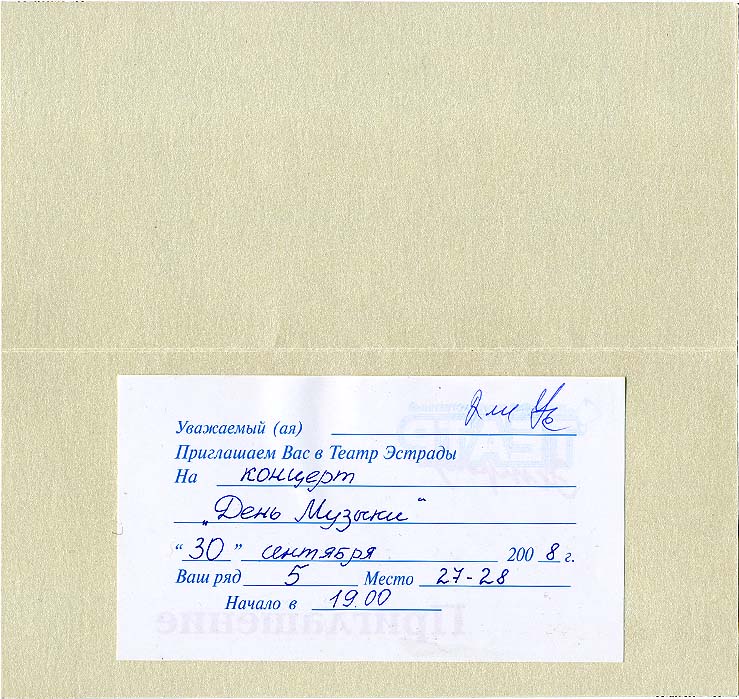 Уважаемый (ая)
Приглашаем Вас в Театр Эстрады
На концерт
„День Музыки“
“ 30 ” сентября 200 8 г.
Ваш ряд 5 Место 27-28
Начало в 19.00
Приглашение